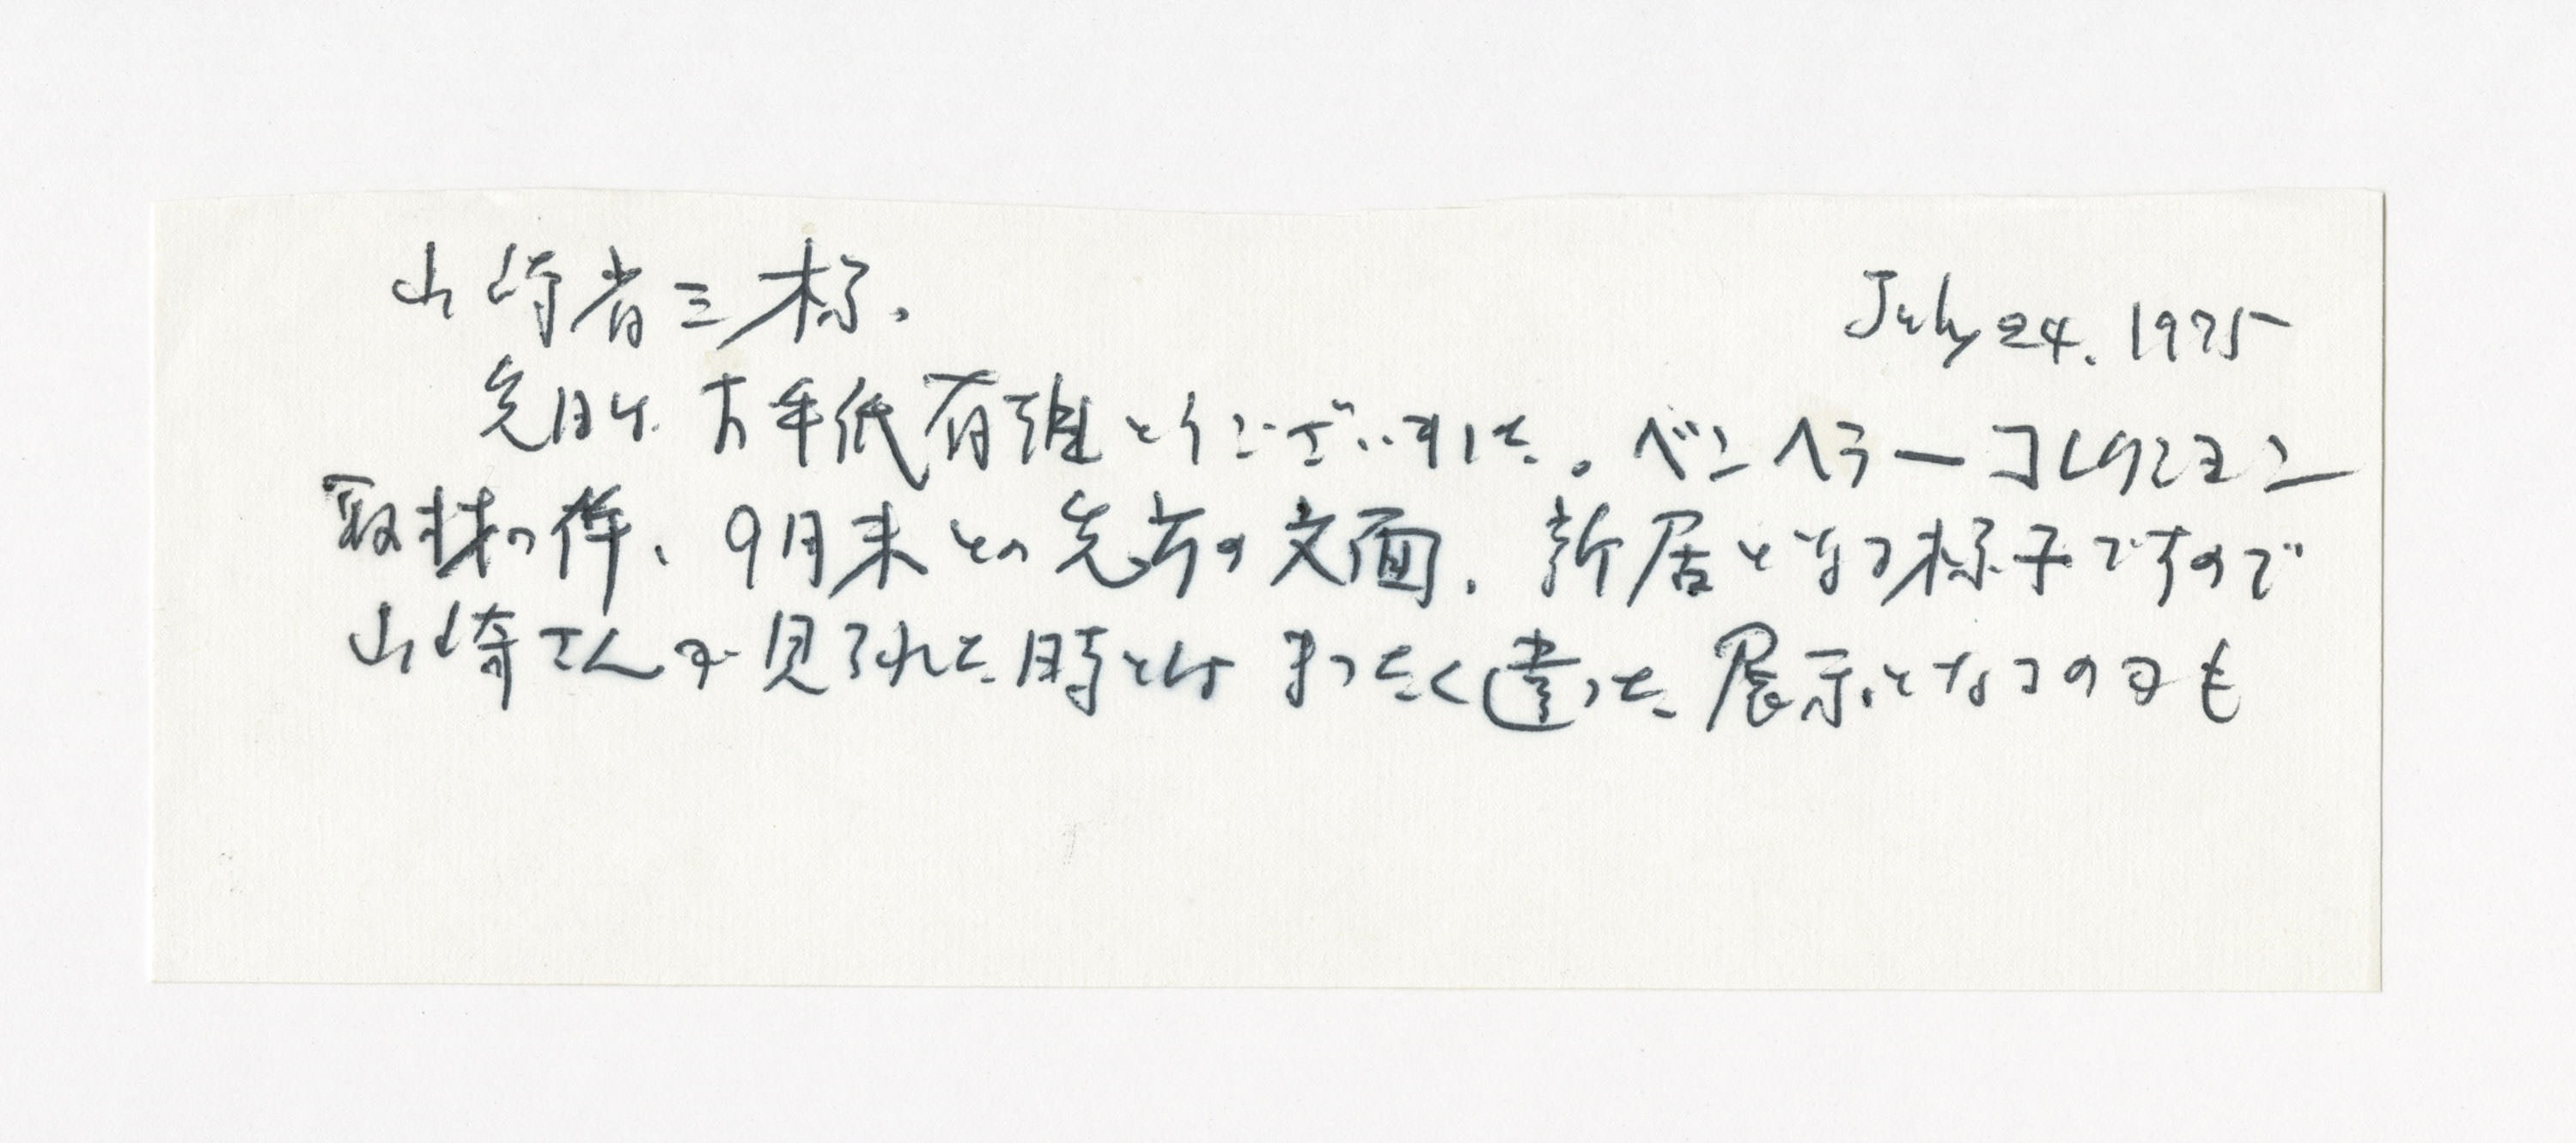 山崎省三様.
July 24. 1975
先日は お手紙有難とうございました。ベンヘラーコレクション
取材の件、9月末との先方の文面. 新居となる様子ですので
山崎さんが見られた時とは まったく違った 展示となるのかも